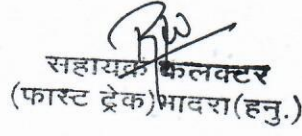 सहायक कलक्टर
(फास्ट ट्रेक)भादरा(हनु.)